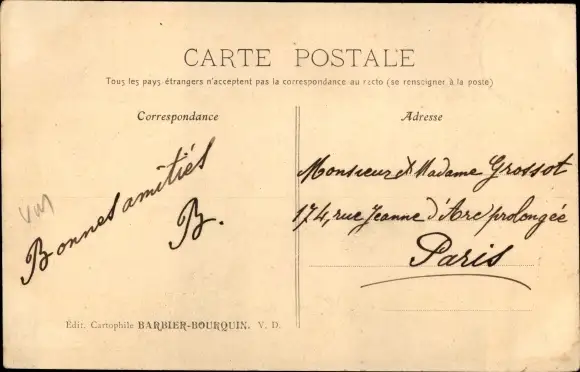 CARTE POSTALE
Tous les pays étrangers n'acceptent pas la correspondance au recto (se renseigner à la poste)
Correspondance
Adresse
Bonnes amitiés
B.
Monsieur et Madame Grossot
174, rue Jeanne d'Arc prolongée
Paris
Édit. Cartophile BARBIER-BOURQUIN. V. D.